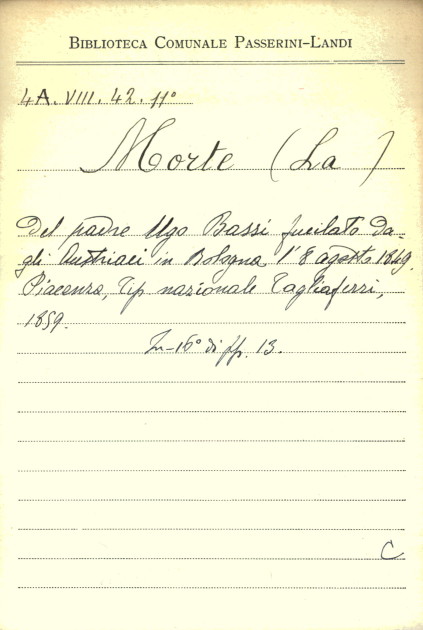 BIBLIOTECA COMUNALE PASSERINI-LANDI
4A. VIII. 42. 11°
Morte (La)
Del padre Ugo Bassi fucilato da-
gli Austriaci in Bologna l'8 agosto 1849.
Piacenza, Tip nazionale Tagliaferri,
1859.
In-16° di pp. 13.
C